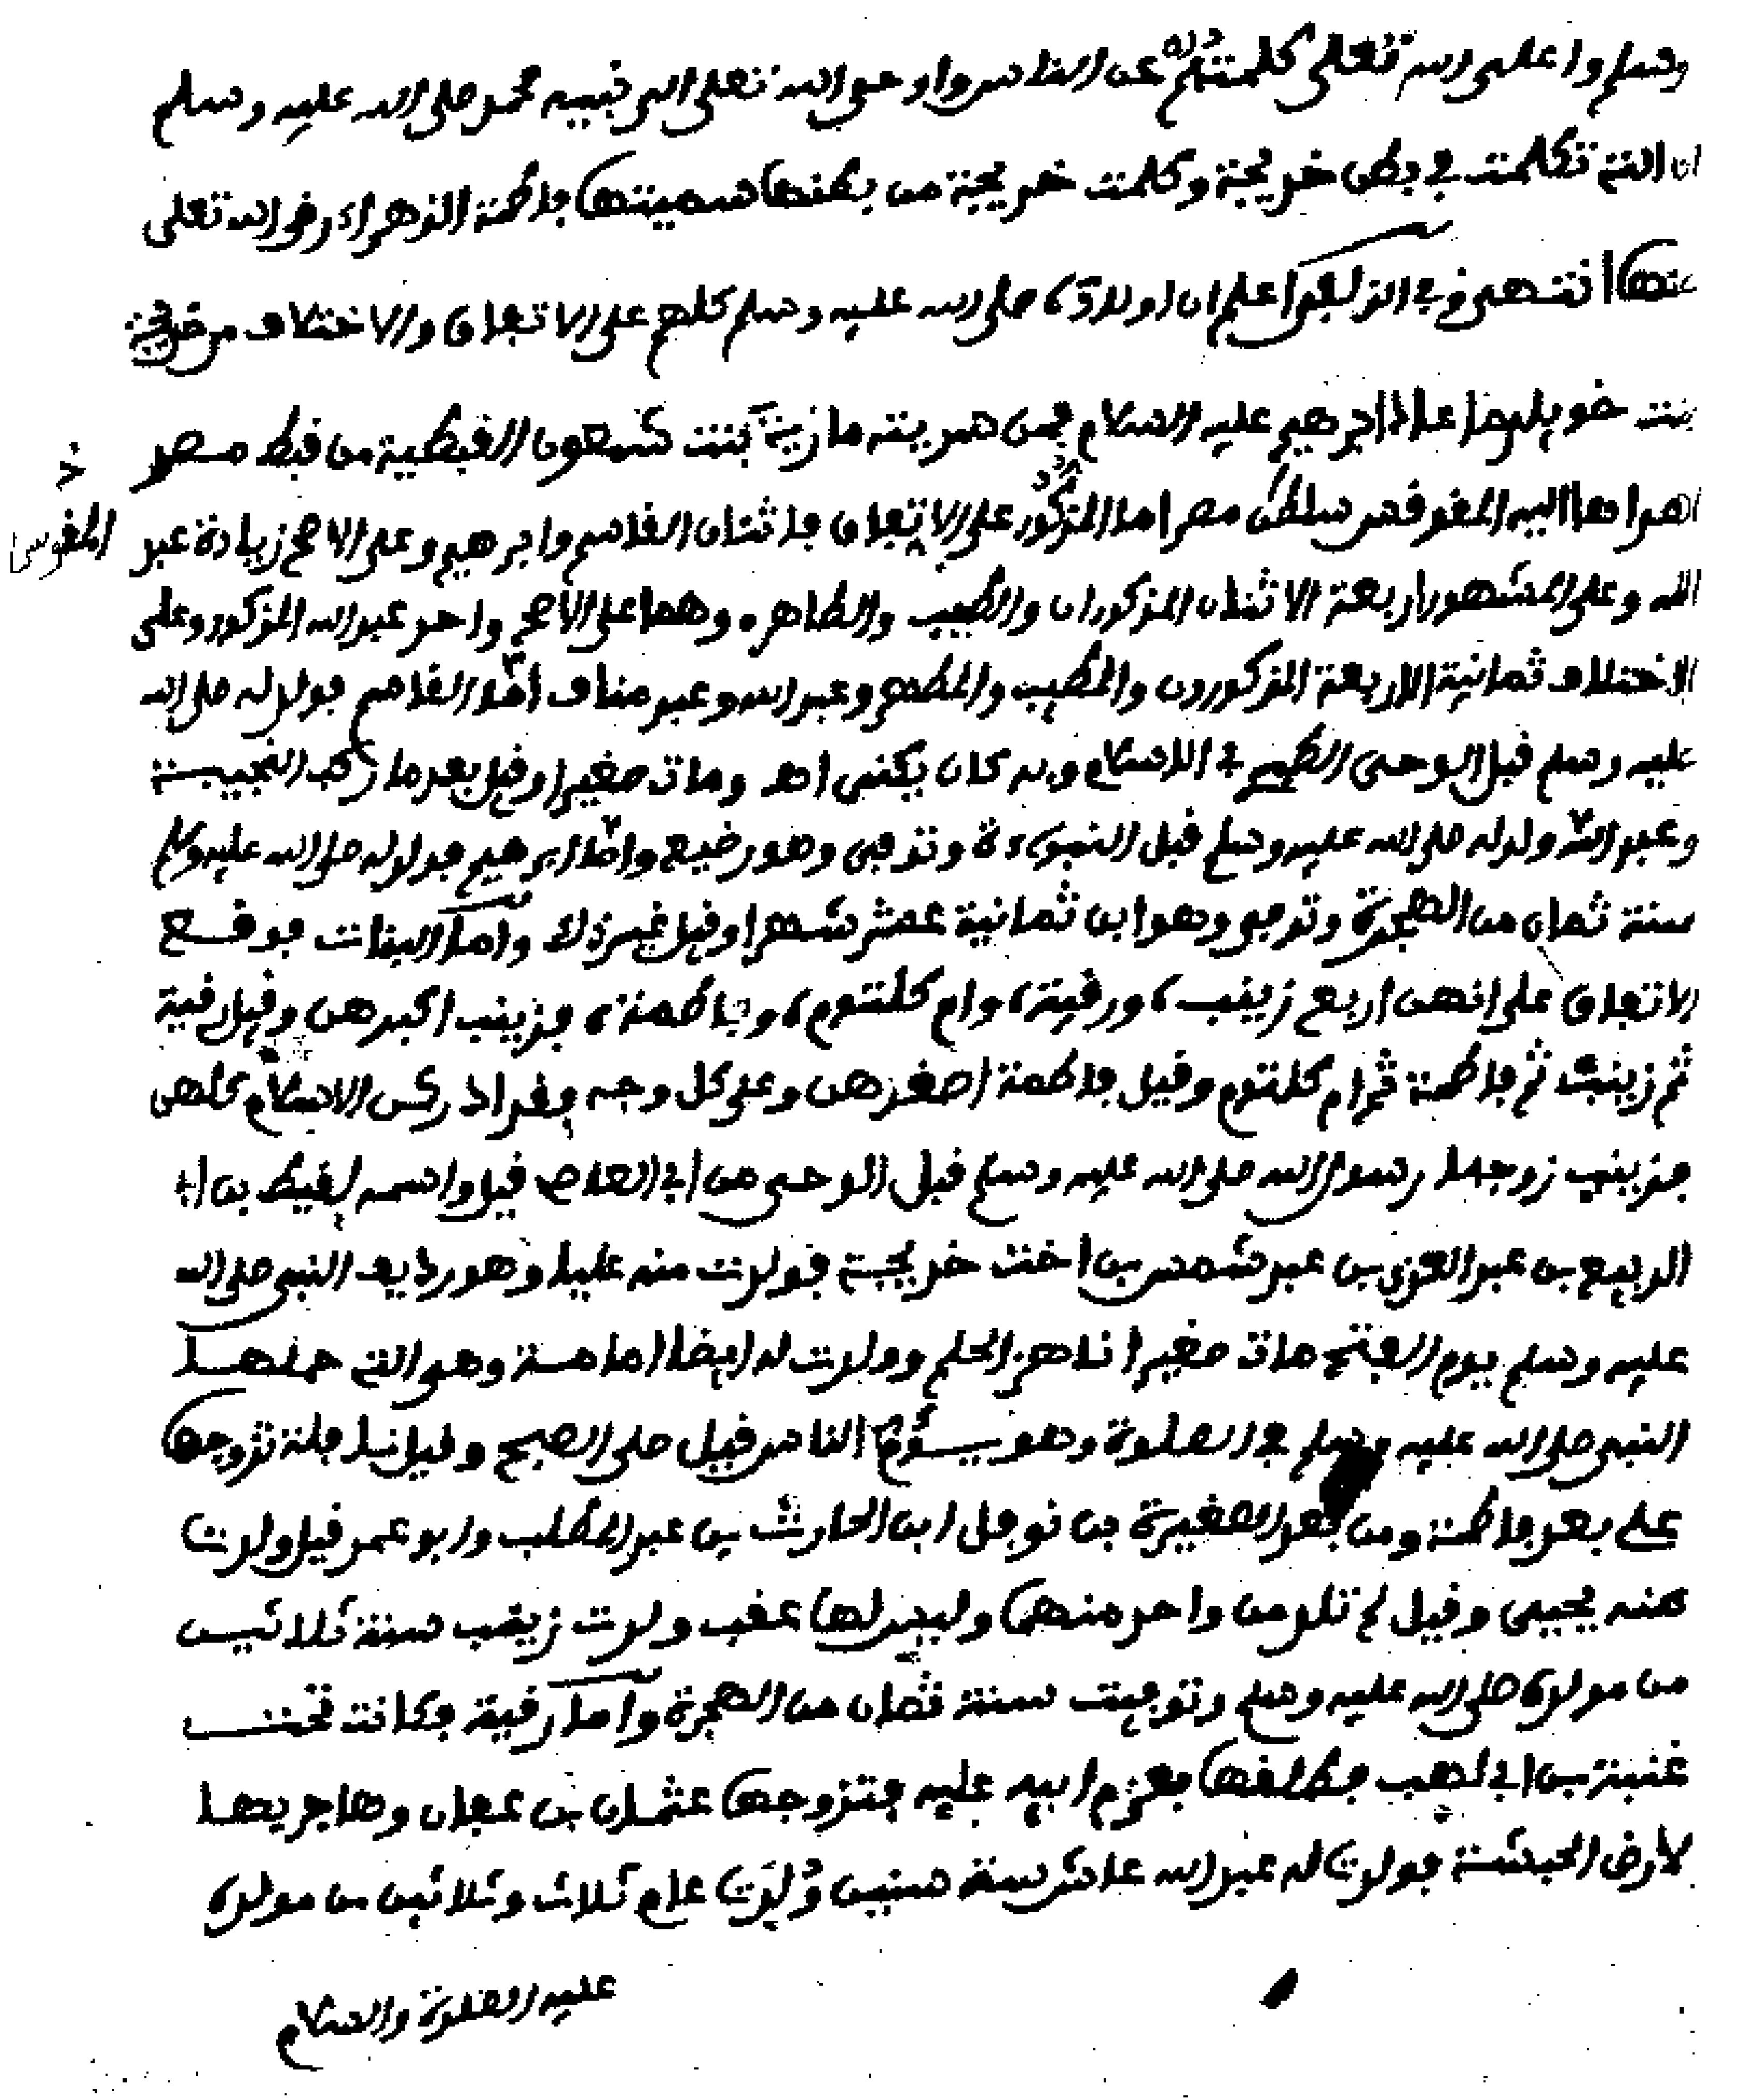 وسلموا على الله تعلى كلمته عن الناس واوحى الله تعلى الى نبيه محمد صلى الله عليه وسلم
ان التي تكلمت في بطن خديجة وكلمت خديجة من بطنها سميتها فاطمة الزهراء رضي الله تعلى
عنها انتهى في اعلم ان اولاده صلى الله عليه وسلم كلهم على الاتفاق والاختلاف من خديجة
بنت خويلد ما عدا ابرهيم عليه السلام فمن سريته مارية بنت شمعون القبطية من قبط مصر
اهداها اليه المقوقس سلطان مصر اما الذكور على الاتفاق فاثنان القاسم وابرهيم وعلى الاصح زيادة عبد
المقوس خ
الله وعلى المشهور اربعة الاثنان المذكوران والطيب والطاهر وهما على الاصح واحد عبد الله المذكور وعلى
الاختلاف ثمانية الاربعة المذكورون والمطيب والمطهر وعبد الله وعبد مناف امّا القاسم فولد له صلى الله
عليه وسلم قبل الوحي في الاسلام وبه كان يكنى اهـ ومات صغيرا وقيل بعد ما ركب النجيبة
وعبد الله ولد له صلى الله عليه وسلم قبل النبوءة وتوفي وهو رضيع وامّا ابرهيم فولد له صلى الله عليه وسلم
سنة ثمان من الهجرة وتوفي وهو ابن ثمانية عشر شهرا وقيل غير ذلك وامّا البنات فوقع
الاتفاق على انهن اربع زينب، ورقية، وام كلثوم، وفاطمة، فزينب اكبرهن وقيل رقية
ثم زينب ثم فاطمة ثم ام كلثوم وقيل فاطمة اصغرهن وعلى كل وجه فقد ادركن الاسلام كلهن
فزينب زوجها رسول الله صلى الله عليه وسلم قبل الوحي من ابي العاص قيل واسمه لقيط بن ا
الربيع بن عبد العزى بن عبد شمس بن اخت خديجة فولدت منه عليا وهو رديف النبي صلى الله
عليه وسلم يوم الفتح مات صغيرا ناهز الحلم وولدت له ايضا امامة وهي التي حملها
النبي صلى الله عليه وسلم في الصلوة وهو يؤم الناس قيل صلى الصبح وقيل نافلة تزوجها
علي بعد فاطمة ومن بعد المغيرة بن نوفل ابن الحارث بن عبد المطلب وابو عمر قيل ولدت
منه يحيى وقيل لم تلد من واحد منهما وليس لها عقب ولدت زينب سنة ثلاثين
من مولده صلى الله عليه وسلم وتوفيت سنة ثمان من الهجرة وامّا رقية فكانت تحت
عتبة بن ابي لهب فطلقها بعزم ابيه عليه فتزوجها عثمان بن عفان وهاجر بها
لارض الحبشة فولدت له عبد الله عاش ستة سنين وُلِدَت عام ثلاث وثلاثين من مولده
عليه الصلوة والسلام